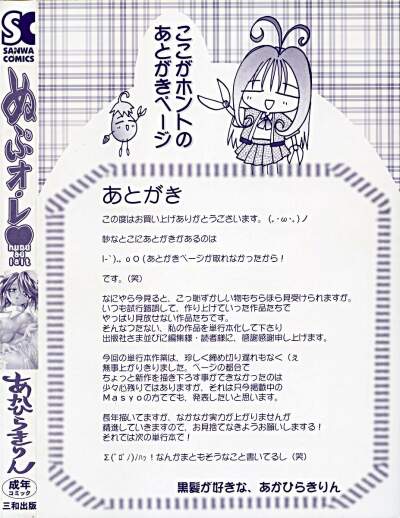 SC
SANWA
COMICS
ぬぷオ・レ
あかひらきりん
成年
コミック
三和出版
ここがホントの
あとがきページ
あとがき
この度はお買い上げありがとうございます。(｡･ω･｡)ノ
妙なとこにあとがきがあるのは
|-`)｡｡oO(あとがきページが取れなかったから!
です。(笑)
なにやら今見ると、こっ恥ずかしい物もちらほら見受けられますが、
いつも試行錯誤して、作り上げていった作品たちで
やっぱり見放せない作品たちです。
そんなつたない、私の作品を単行本化して下さり
出版社さま並びに編集様・読者様に、感謝感謝申し上げます。
今回の単行本作業は、珍しく締め切り遅れもなく(ぇ
無事上がりきりました。ページの都合で
ちょっと新作を描き下ろす事ができなかったのは
少々心残りではありますが、それは只今掲載中の
Masyoの方でても、発表したいと思います。
長年描いてますが、なかなか実力が上がりませんが
精進していきますので、お見捨てなきようお願いしまする!
それでは次の単行本で!
Σ(ﾟﾛﾟﾉ)ﾉﾊｯ!なんかまともそうなこと書いてるし(笑)
黒髪が好きな、あかひらきりん